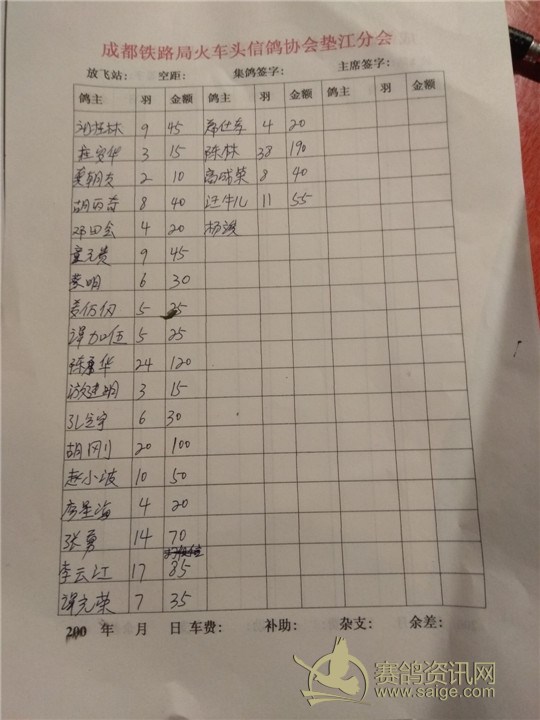 成都铁路局火车头信鸽协会垫江分会
放飞站: 空距: 集鸽签字: 主席签字:
鸽主 羽 金额 鸽主 羽 金额 鸽主 羽 金额
刘桂林 9 45 4 20
3 15 陈林 38 190
2 10 高成荣 8 40
胡百奇 8 40 汪牛儿 11 55
邓田会 4 20 杨波
童元贵 9 45
黄明 6 30
5 25
谭加伍 5 25
陈康华 24 120
游建明 3 15
孔令宇 6 30
胡刚 20 100
赵小波 10 50
廖星海 4 20
张勇 14 70
李云江 17 85
谭光荣 7 35
200 年 月 日 车费: 补助: 杂支: 余差:
赛鸽资讯网
www.saige.com